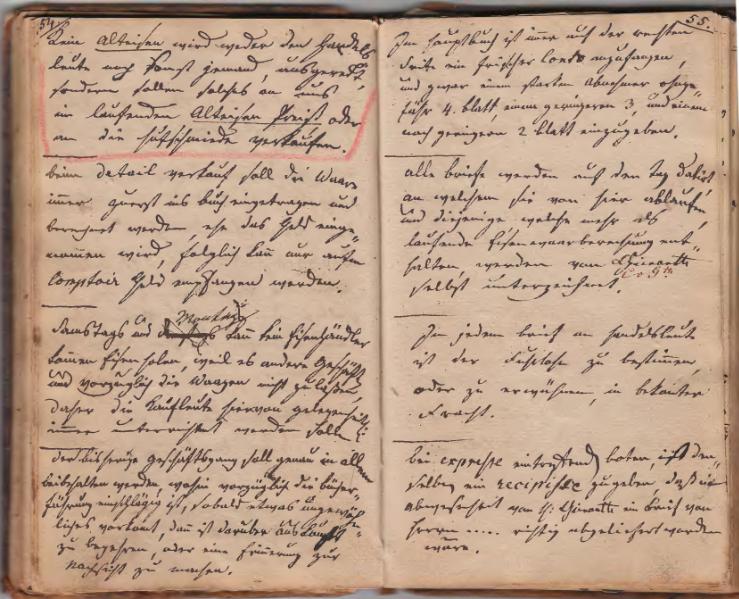 54.
Kein Alteisen wird weder den Handels
leute noch sonst jemand, ausgeredt,
sondern sollen solches an uns
im laufenden Alteisen Preiß oder
an die Hufschmiede verkaufen.
beim Detail verkauf soll die Waare
immer zuerst ins buch eingetragen und
berechnet werden, ehe das Geld einge=
nommen wird, folglich kann nur aufm
Comptoir Geld empfangen werden.
Montags
Samstags und kann kein Eisenhändler
kommen Eisen holen, weil es andere Geschäft
und vorzüglich die Waagen nicht zulassen
daher die Kaufleute hiervon gelegenheitl:
immer unterrichtet werden sollen
der bisherige Geschäftsgang soll genau in allem
beibehalten werden, wohin vorzüglich die bücher=
führung einschlägig ist, sobald etwas ungewöhn=
liches vorkomt, dann ist darüber Auskunft
zu begehren, oder eine Erinnerung zur
Nachsicht zu machen.
55.
Im Hauptbuch ist immer auf der rechten
Seite ein frischer Conto anzufangen,
und zwar einem starken Abnehmer ohnge=
fähr 4. blatt, einem geringeren 3, und einem
noch geringern 2 blatt einzugeben.
alle briefe werden auf den Tag datirt
an welchem sie von hier ablaufen,
und diejenige welche mehr als
laufende Eisenwaarberechnung ent=
halten, werden von
selbst unterzeichnet.
In jedem brief an Handelsleute
ist der Fuhrlohn zu bestimmen,
oder zu erwähnen, in bekanter
Fracht.
bei expresse eintreffend boten, ist den=
selben ein recipisse zugeben daß in
abwesenheit von H: ein brief von
Herrn ..... richtig abgeliefert worden
wäre.